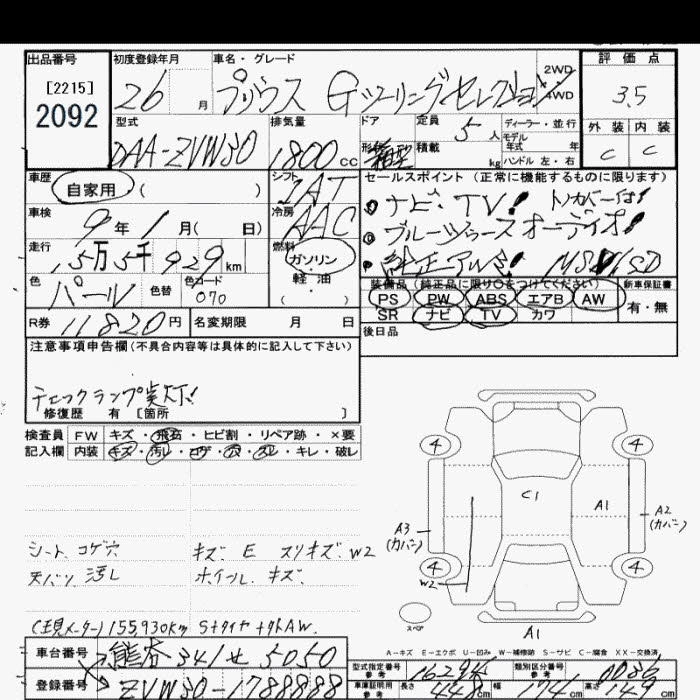 出品番号 初度登録年月 車名・グレード 評価点
[2215] 26 月 プリウス Gツーリングセレクション 2WD 4WD 3.5
2092
型式 排気量 ドア 定員 5人 ディーラー・並行 外装 内装
DAA-ZVW30 1800cc 形状 箱型 積載 kg モデル年式 年 ハンドル 左・右 C C
車歴 自家用 ( ) シフト IAT セールスポイント (正常に機能するものに限ります)
車検 9年1月( 日) 冷房 AAC ナビ TV!
ブルーツゥース オーディオ!
走行 15万5千929km 燃料 ガソリン・軽油 純正アルミ!
色 パール 色替 色コード 070 装備品 (純正品に限り○をつけてください) 新車保証書
PS PW ABS エアB AW 有・無
R券 11820円 名変期限 月 日 SR ナビ TV カワ
後日品
注意事項申告欄(不具合内容等は具体的に記入して下さい)
チェックランプ実灯!
修復歴 有 [箇所 ]
検査員 FW キズ・飛石・ヒビ割・リペア跡・×要
記入欄 内装 キズ・汚レ・コゲ・穴・スレ・キレ・破レ
4 4
C1 A1
A3 (カバー) A2 (カバー)
シート コゲ穴 キズ E スリキズ W2
4 4
天バリ 汚レ ホイール キズ W2
スペア
(現メーター)155,930km Sタイヤ+外AW. A1
A-キズ E-エクボ U-凹み W-補修跡 S-サビ C-腐食 XX-交換済
車台番号 熊谷341せ5050 型式指定番号 参考 類別区分番号 参考
登録番号 ZVW30-1788888 車庫証明用 参考 長さ 448cm 幅 174cm 高さ 149cm